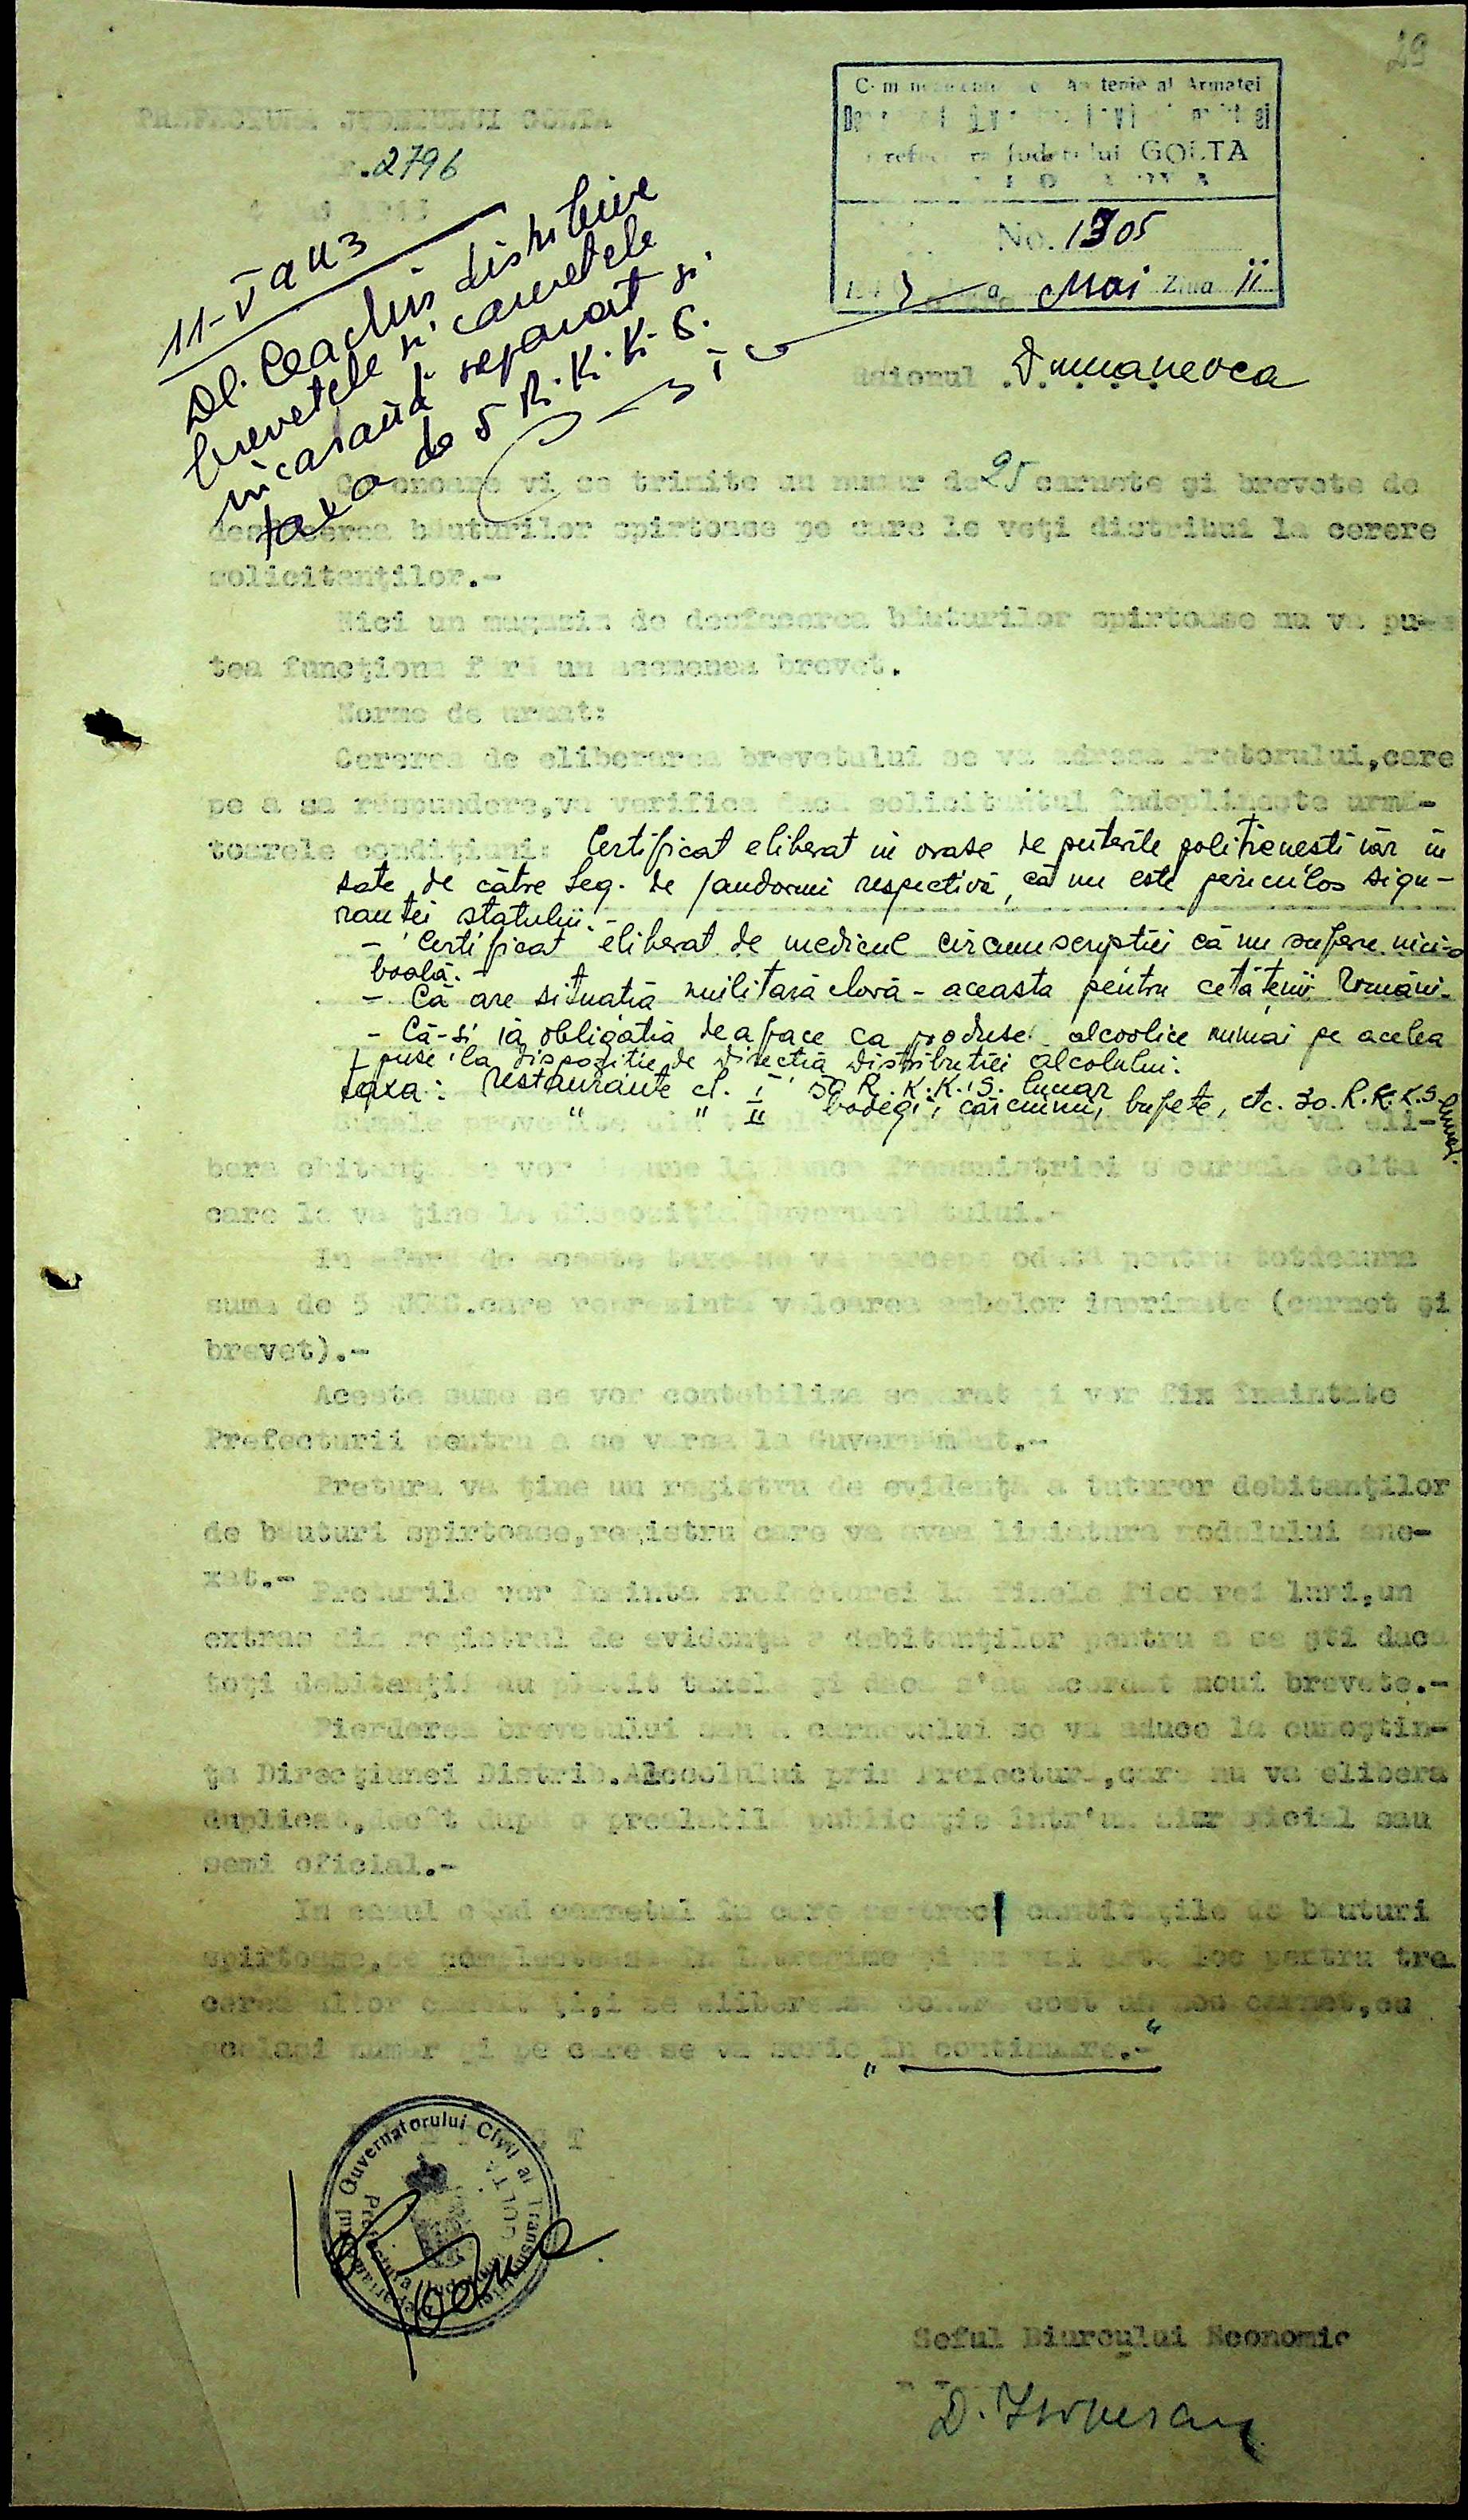 29
PREFECTURA JUDEŢULUI GOLTA
Nr. 2796
Prefectura Judetului GOLTA
No. 1305
Mai Ziua 11
11-V a 43
Dl. distribuie
brevetele si carnetele
incasand separat si
taxa de 5 R.K.K.S.
Raionul Dumanevca
Cu onoare vi se trimite un numar de 25 carnete şi brevete de
desfacerea băuturilor spirtoase pe care le veţi distribui la cerere
solicitanţilor.-
Nici un magazin de desfacerea băuturilor spirtoase nu va pu-
tea funcţiona fără un asemenea brevet.
Norme de urmat:
Cererea de eliberarea brevetului se va adresa Pretorului,care
pe a sa răspundere,va verifica daca solicitantul îndeplineşte urmă-
toarele condiţiuni: Certificat eliberat in orase de puterile politienesti iar in
sate de către Seq. de jandarmi respectivă, că nu este periculos sigu-
rantei statului.-
- Certificat eliberat de medicul circumscriptiei că nu sufere nici-o
boală.-
- Că are situatia militară clară - aceasta pentru cetătenii Români.
- Că-si ia obligatia de a face ca produse alcoolice numai pe acelea
puse la dispozitie de Directia distributiei alcolului.
taxa: restaurante cl. I 50 R.K.K.S. lunar
" " II bodegi, cârciumi, bufete, etc. 30. R.K.K.S. lunar.
Sumele provenite din brevet pentru care se va eli-
bera chitanţă se vor depune la Banca Transnistriei sucursala Golta
care le va ţine la dispoziţia Guvernământului.-
In afară de aceste taxe se va percepe odată pentru totdeauna
suma de 5 RKKS.care reprezintă valoarea ambelor imprimate (carnet şi
brevet).-
Aceste sume se vor contabiliza separat şi vor fix înaintate
Prefecturii pentru a se varsa la Guvernământ.-
Pretura va ţine un registru de evidenţa a tuturor debitanţilor
de băuturi spirtoase,registru care va avea liniatura modelului ane-
xat.-
Preturile vor înainta Prefecturei la finele fiecarei luni,un
extras din registrul de evidenţa a debitanţilor pentru a se şti daca
toţi debitanţii au platit taxele şi daca s'au acordat noui brevete.-
Pierderea brevetului sau a carnetului se va aduce la cunoştin-
ţa Direcţiunei Distrib.Alcoolului prin Prefectură,care nu va elibera
duplicat,decât după o prealabilă publicaţie într'un ziar oficial sau
semi oficial.-
In cazul când carnetul în care se trec cantităţile de băuturi
spirtoase,se completează în întregime şi nu mai este loc pentru tre
cerea altor cantităţi,i se eliberează contra cost un nou carnet,cu
acelaşi numar şi pe care se va scrie „în continuare.-"
PREFECT
Guvernatorului Civil al Transnistriei
GOLTA
Seful Biuroului Economic